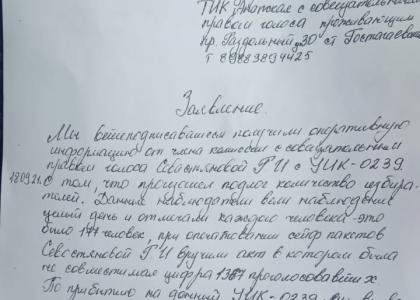 ТИК Анапская с совещательным
правом голоса проживающим
пр. Раздольный д30 ст Гостагаевская
т 89883894425
Заявление.
Мы вышеподписавшиеся получили оперативную
информацию от члена комиссии с совещательным
правом голоса Севастьяновой Г И с УИК-0239.
18.09.21г. О том, что произошел подлог количество избира-
телей. Данные наблюдатели вели наблюдение
целый день и отмечали каждого человека это
было 177 человек, при опечатовании сейф пакетов
Севостяновой Г И вручили акт в котором была
не совместимая цифра 1387 проголосовавших
По прибытию на данный УИК-0239